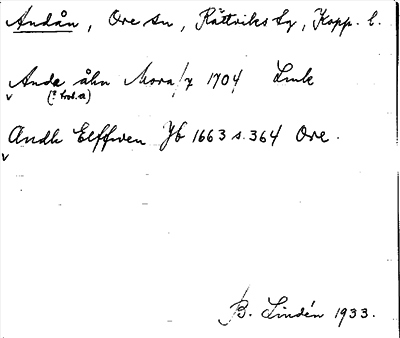 Andån, Ore sn, Rättviks tg, Kopp. l.
Anda åhn Mora/7 1704 Lmk
(? trol. a)
Andh Elffwen Jb 1663 s. 364 Ore.
B. Lindén 1933.